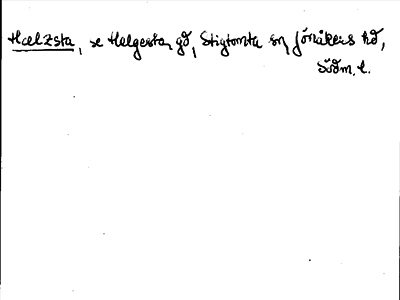 Hælzsta, se Helgesta, gd, Stigtomta sn, Jönåkers hd,
Södm. l.